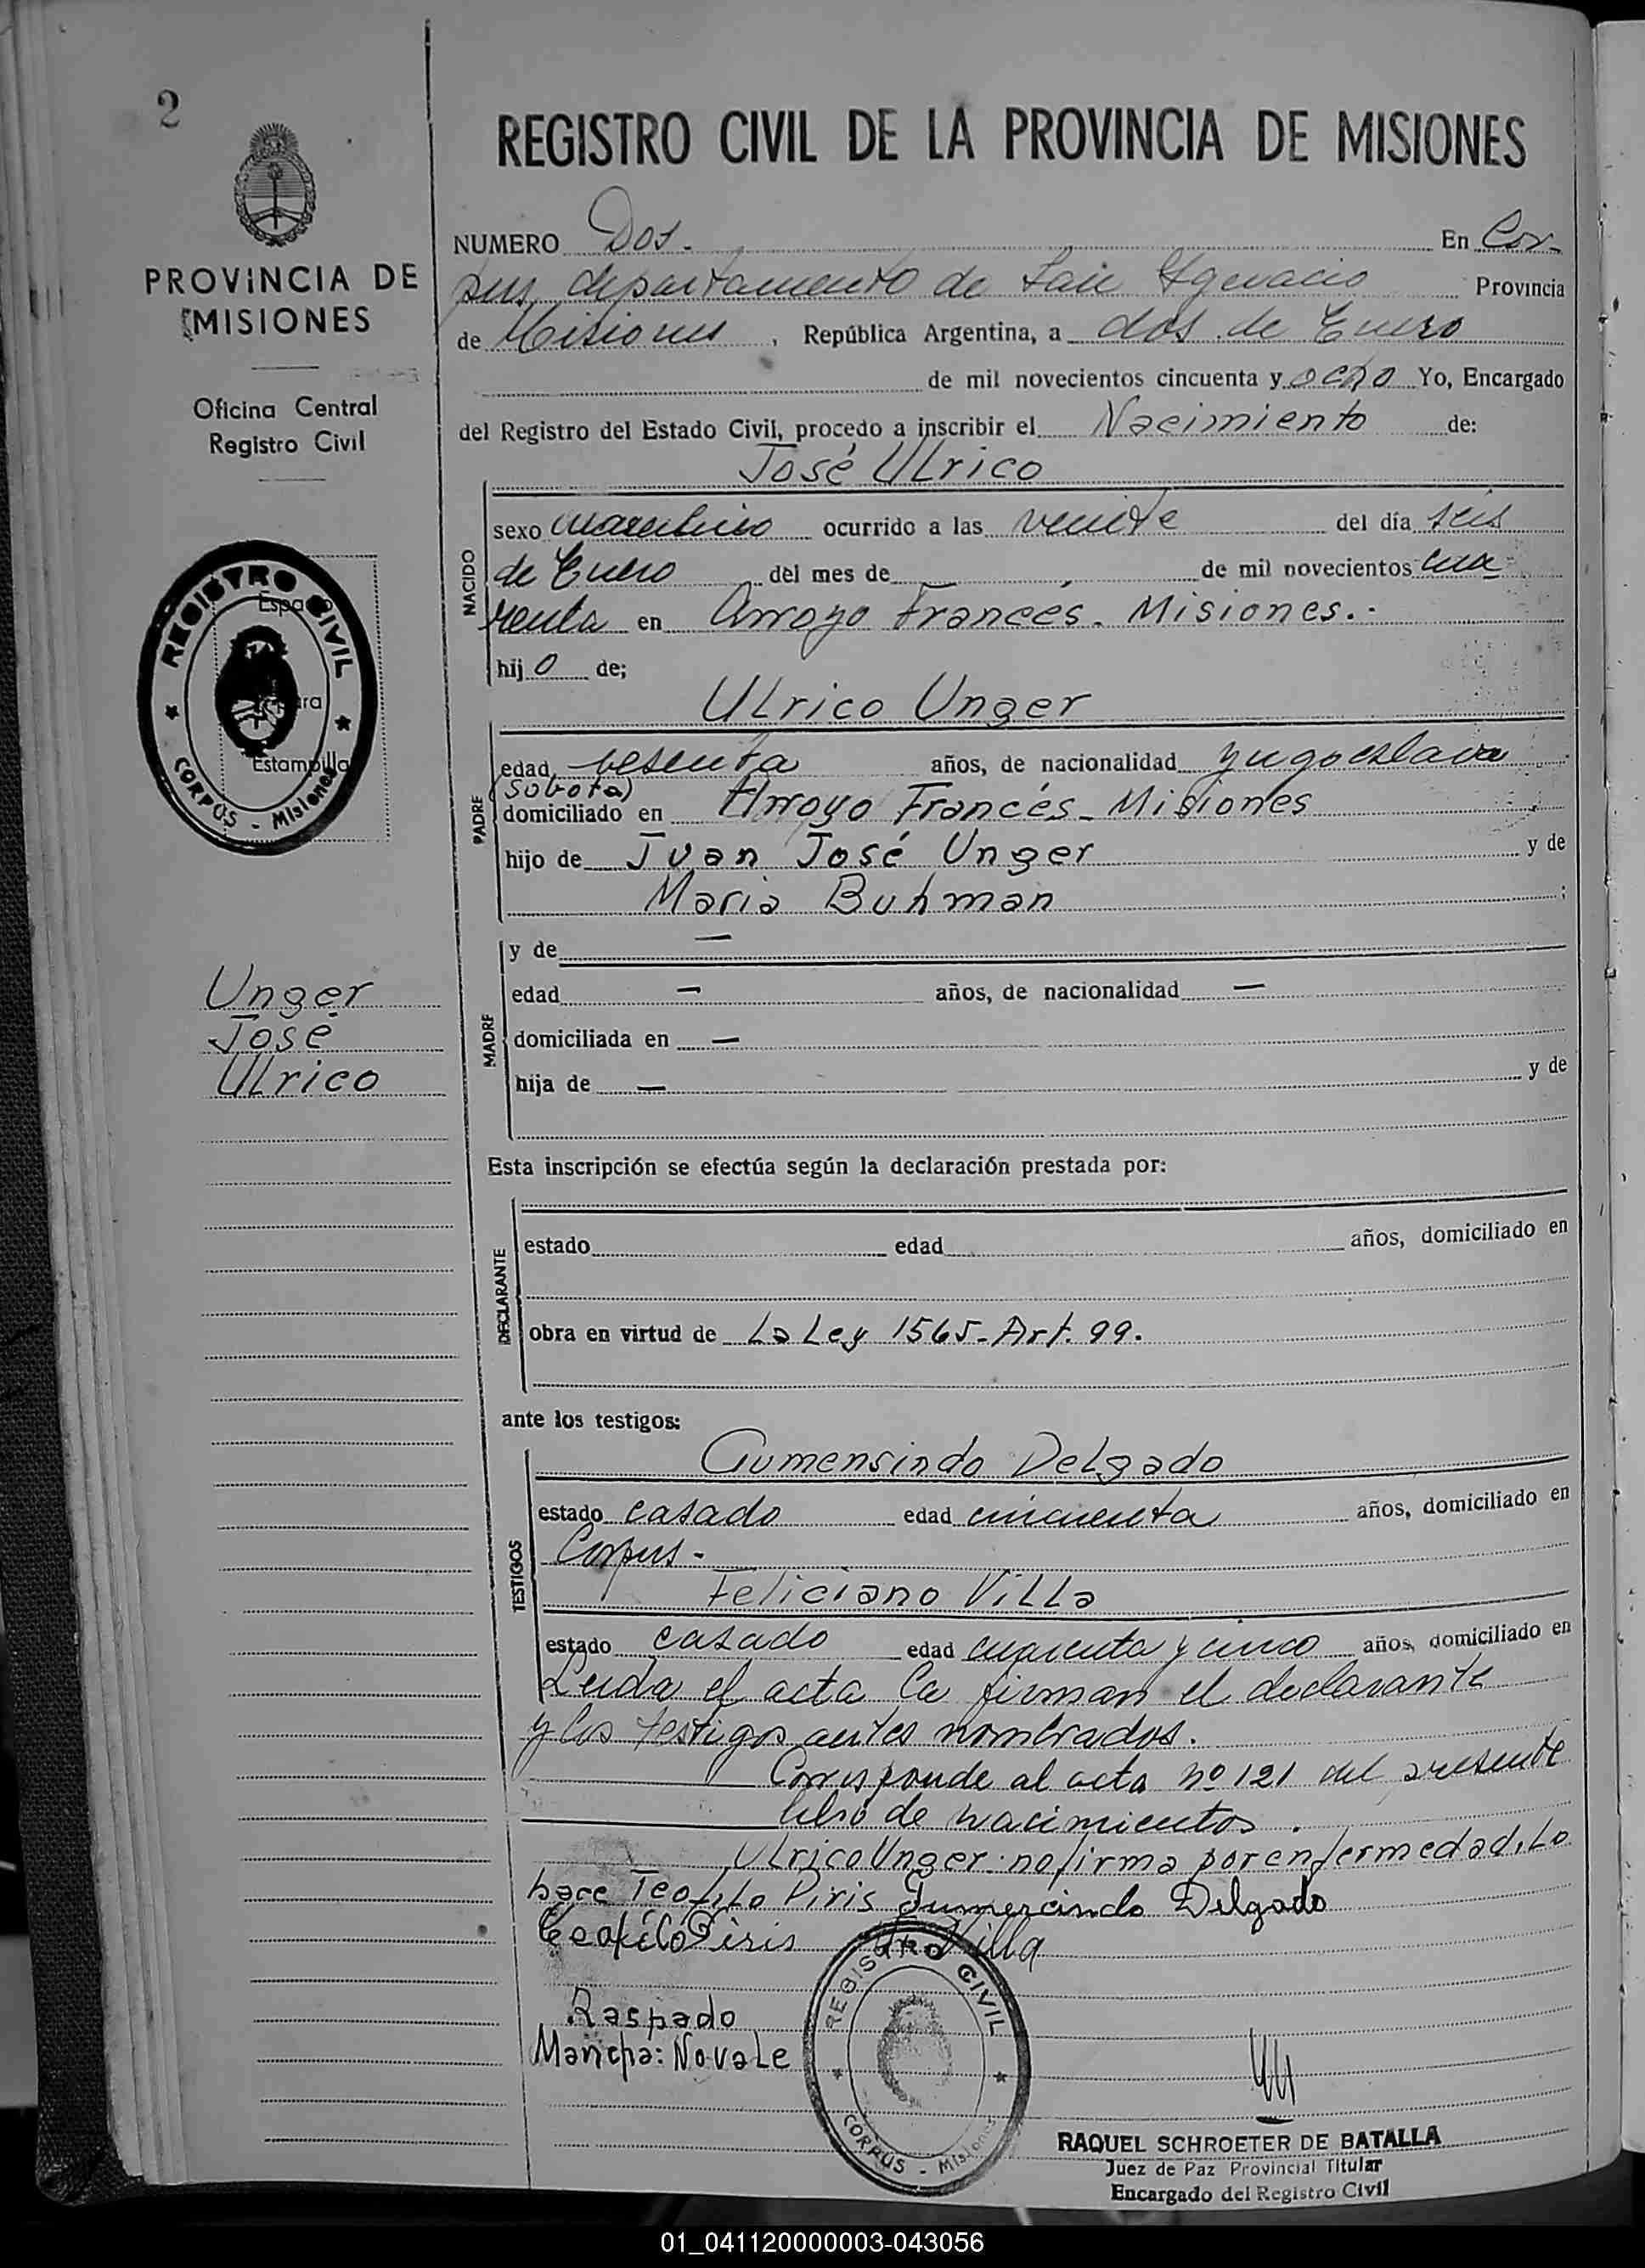 2
PROVINCIA DE
MISIONES
Oficina Central
Registro Civil
REGISTRO CIVIL
Espa
ra
Estampilla
CORPUS - Misiones
Unger
José
Ulrico
REGISTRO CIVIL DE LA PROVINCIA DE MISIONES
NUMERO Dos. En Cor-
pus, departamento de San Ignacio Provincia
de Misiones, República Argentina, a dos de Enero
de mil novecientos cincuenta y ocho Yo, Encargado
del Registro del Estado Civil, procedo a inscribir el Nacimiento de:
José Ulrico
NACIDO
sexo masculino ocurrido a las veinte del día seis
de Enero del mes de de mil novecientos cua
renta en Arroyo Francés. Misiones.-
hij o de;
Ulrico Unger
PADRE
edad sesenta años, de nacionalidad yugoeslava
(Sobota)
domiciliado en Arroyo Francés - Misiones
hijo de Juan José Unger y de
Maria Buhman ;
MADRE
y de —
edad — años, de nacionalidad —
domiciliada en —
hija de — y de
Esta inscripción se efectúa según la declaración prestada por:
DECLARANTE
estado edad años, domiciliado en
obra en virtud de La Ley 1565-Art. 99.
ante los testigos:
TESTIGOS
Gumensindo Delgado
estado casado edad cincuenta años, domiciliado en
Corpus -
Feliciano Villa
estado casado edad cuarenta y cinco años, domiciliado en
Leida el acta la firman el declarante
y los testigos antes nombrados.
Corresponde al acta nº 121 del presente
libro de nacimientos.
Ulrico Unger no firma por enfermedad, Lo
hace Teofilo Piris Gumercindo Delgado
Teofilo Piris Villa
Raspado
Mancha: No vale
REGISTRO CIVIL
CORPUS - Misiones
RAQUEL SCHROETER DE BATALLA
Juez de Paz Provincial Titular
Encargado del Registro Civil
01_041120000003-043056